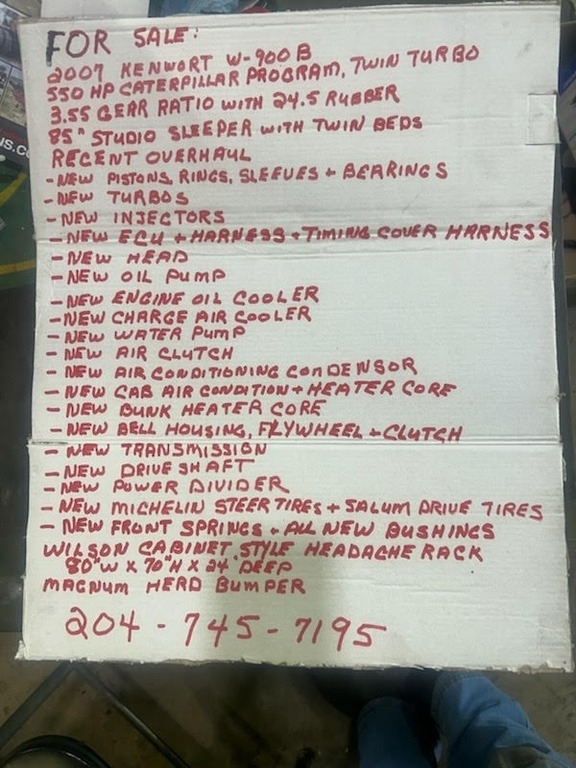 FOR SALE:
2007 KENWORT W-900 B
550 HP CATERPILLAR PROGRAM, TWIN TURBO
3.55 GEAR RATIO WITH 24.5 RUBBER
85" STUDIO SLEEPER WITH TWIN BEDS
RECENT OVERHAUL
- NEW PISTONS, RINGS, SLEEVES + BEARINGS
- NEW TURBOS
- NEW INJECTORS
- NEW ECU + HARNESS + TIMING COVER HARNESS
- NEW HEAD
- NEW OIL PUMP
- NEW ENGINE OIL COOLER
- NEW CHARGE AIR COOLER
- NEW WATER PUMP
- NEW AIR CLUTCH
- NEW AIR CONDITIONING CONDENSOR
- NEW CAB AIR CONDITION + HEATER CORE
- NEW BUNK HEATER CORE
- NEW BELL HOUSING, FLYWHEEL + CLUTCH
- NEW TRANSMISSION
- NEW DRIVE SHAFT
- NEW POWER DIVIDER
- NEW MICHELIN STEER TIRES + SALUM DRIVE TIRES
- NEW FRONT SPRINGS + ALL NEW BUSHINGS
WILSON CABINET STYLE HEADACHE RACK
80"W X 70"H X 24" DEEP
MAGNUM HERD BUMPER
204-745-7195